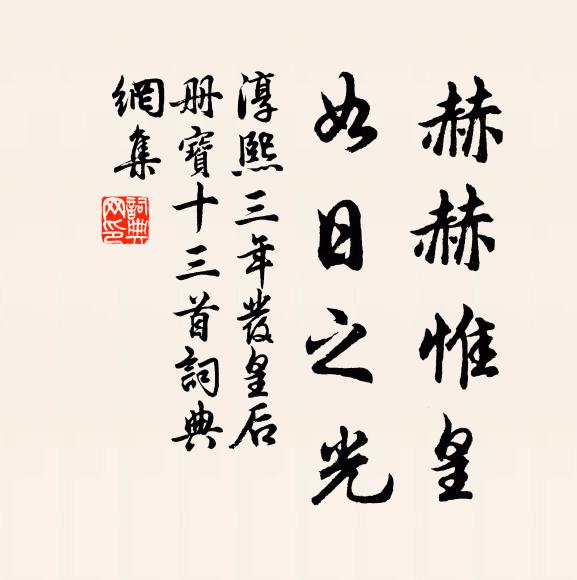 赫赫惟皇
如日之光
淳熙三年發皇后
册寶十三首詞典
網集
詞典
网印